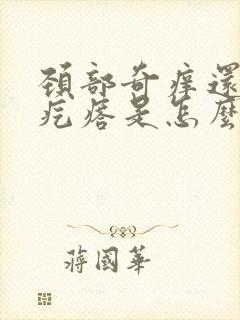 頸部奇痒還
疙瘩是怎麼
蔣國華